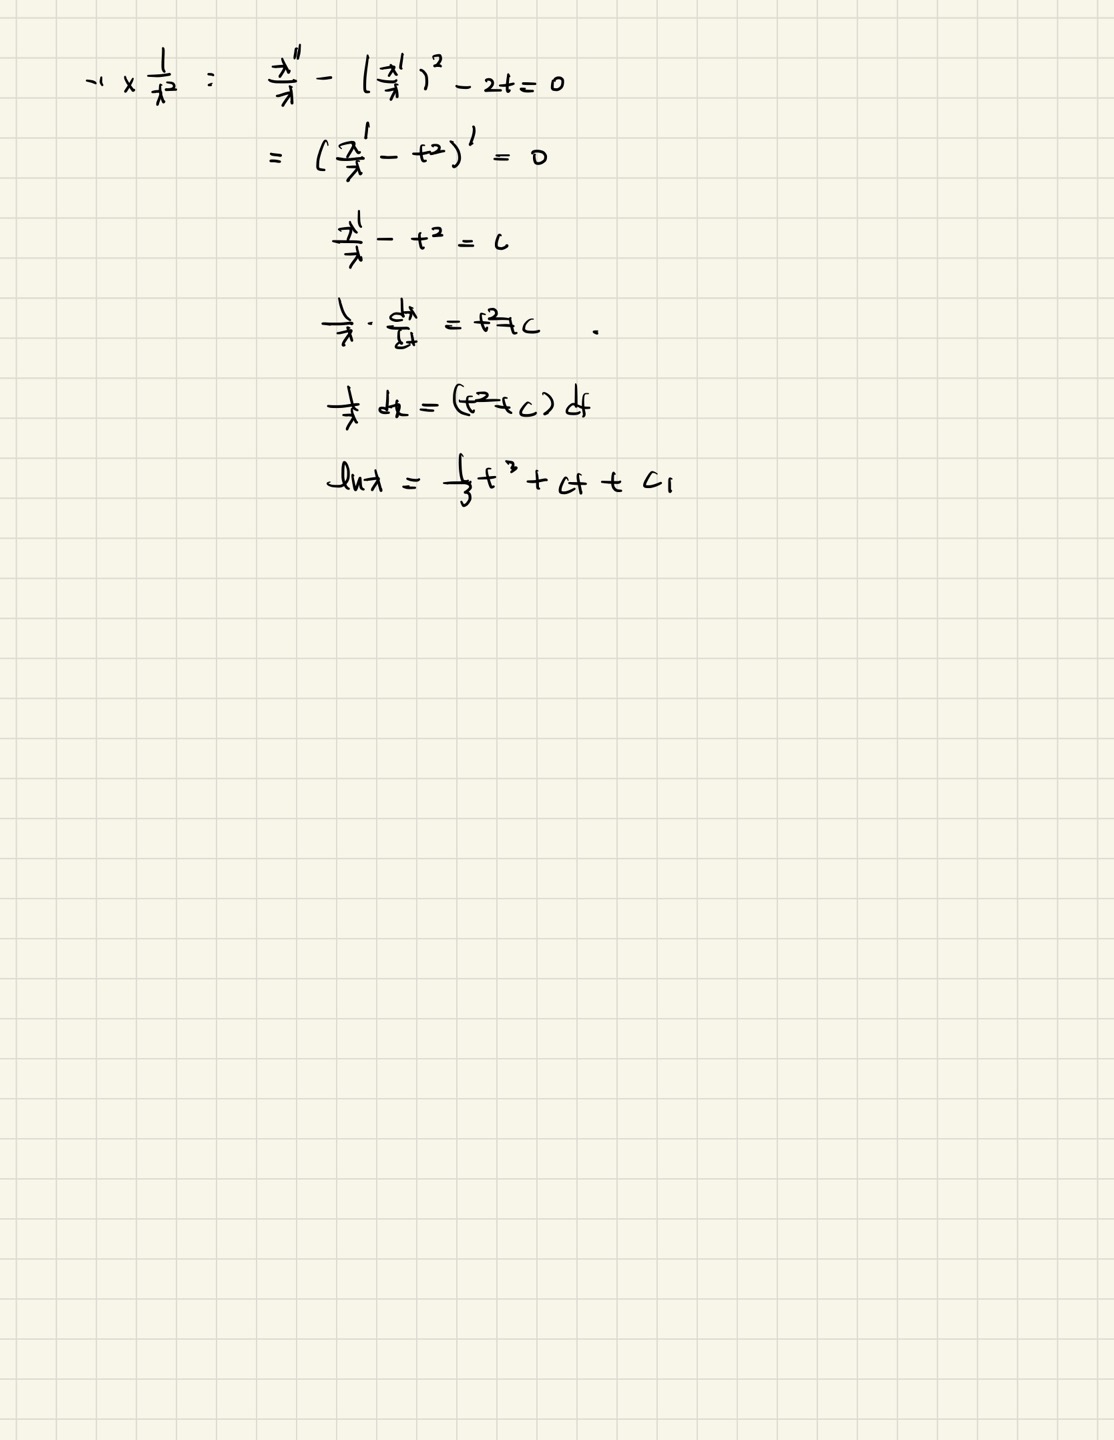 ~1 × 1/x² : x''/x - (x'/x)² - 2t = 0
= (x'/x - t²)' = 0
x'/x - t² = c
1/x · dx/dt = t² + c .
1/x dx = (t² + c) dt
ln x = 1/3 t³ + ct + c₁